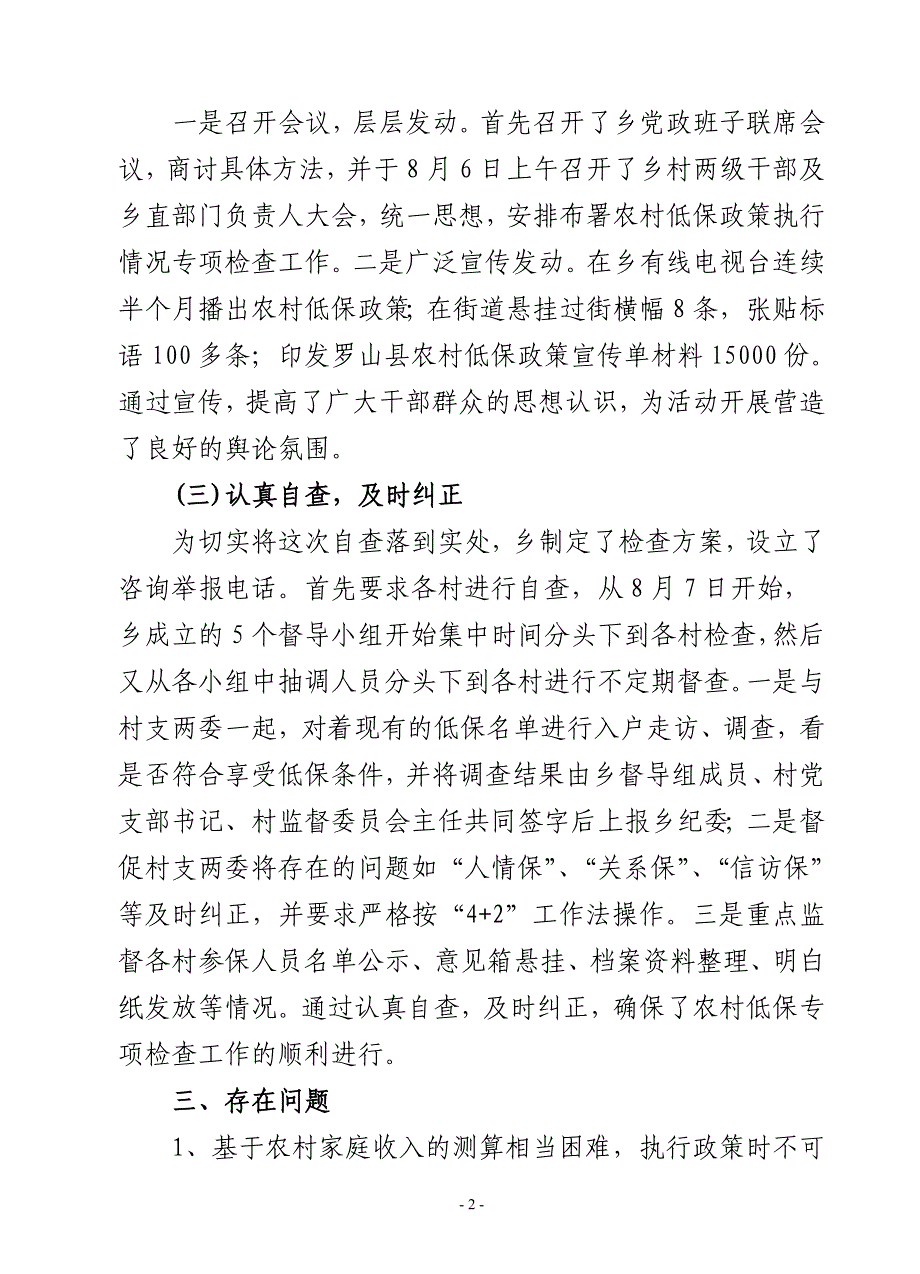 一是召开会议，层层发动。首先召开了乡党政班子联席会
议，商讨具体方法，并于 8 月 6 日上午召开了乡村两级干部及
乡直部门负责人大会，统一思想，安排布署农村低保政策执行
情况专项检查工作。二是广泛宣传发动。在乡有线电视台连续
半个月播出农村低保政策；在街道悬挂过街横幅 8 条，张贴标
语 100 多条；印发罗山县农村低保政策宣传单材料 15000 份。
通过宣传，提高了广大干部群众的思想认识，为活动开展营造
了良好的舆论氛围。
(三)认真自查，及时纠正
为切实将这次自查落到实处，乡制定了检查方案，设立了
咨询举报电话。首先要求各村进行自查，从 8 月 7 日开始，
乡成立的 5 个督导小组开始集中时间分头下到各村检查，然后
又从各小组中抽调人员分头下到各村进行不定期督查。一是与
村支两委一起，对着现有的低保名单进行入户走访、调查，看
是否符合享受低保条件，并将调查结果由乡督导组成员、村党
支部书记、村监督委员会主任共同签字后上报乡纪委；二是督
促村支两委将存在的问题如“人情保”、“关系保”、“信访保”
等及时纠正，并要求严格按“4+2”工作法操作。三是重点监
督各村参保人员名单公示、意见箱悬挂、档案资料整理、明白
纸发放等情况。通过认真自查，及时纠正，确保了农村低保专
项检查工作的顺利进行。
三、存在问题
1、基于农村家庭收入的测算相当困难，执行政策时不可
- 2 -